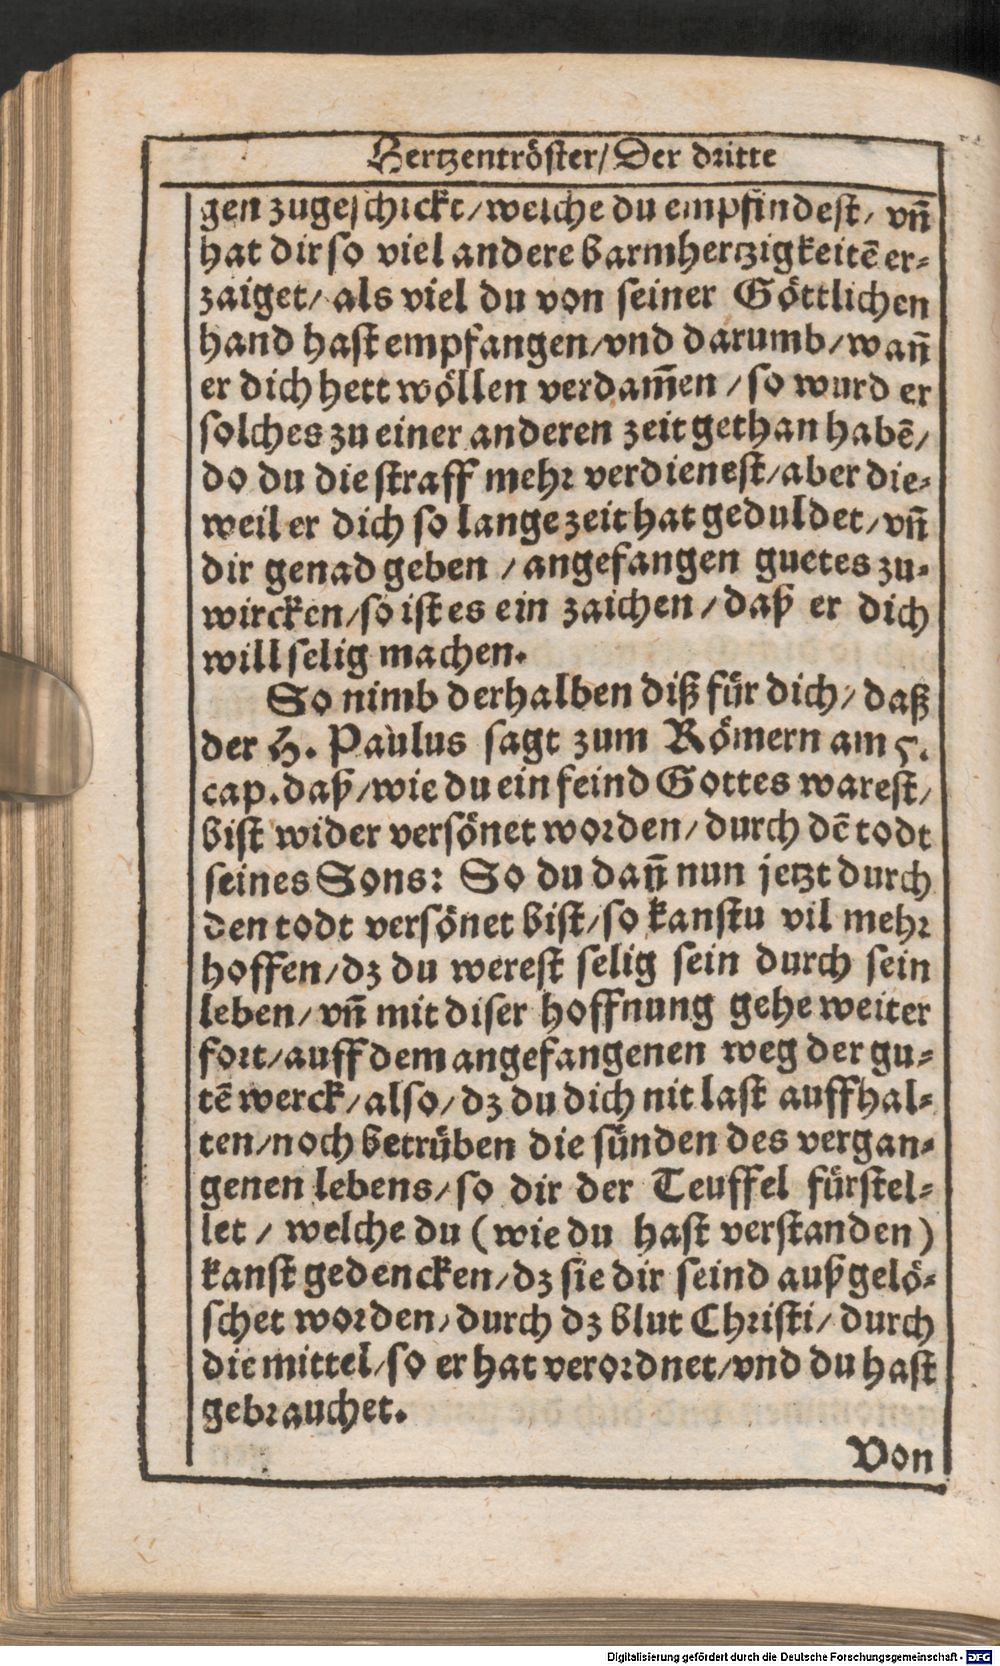 Hertzentröster/ Der dritte
gen zugeschickt/ welche du empfindest/ vñ
hat dir so viel andere barmhertzigkeitẽ er-
zaiget/ als viel du von seiner Göttlichen
hand hast empfangen/ vnd darumb/ wañ
er dich hett wöllen verdam̃en / so wurd er
solches zu einer anderen zeit gethan habẽ/
do du die straff mehr verdienest/ aber die-
weil er dich so lange zeit hat geduldet/ vñ
dir genad geben / angefangen guetes zu-
wircken/ so ist es ein zaichen / daß er dich
will selig machen.
So nimb derhalben diß für dich/ daß
der H. Paulus sagt zum Römern am 5.
cap. daß/ wie du ein feind Gottes warest/
bist wider versönet worden/ durch dẽ todt
seines Sons: So du dañ nun jetzt durch
den todt versönet bist/ so kanstu vil mehr
hoffen/ dz du werest selig sein durch sein
leben/ vñ mit diser hoffnung gehe weiter
fort/ auff dem angefangenen weg der gu-
tẽ werck/ also/ dz du dich nit last auffhal-
ten/ noch betrüben die sünden des vergan-
genen lebens/ so dir der Teuffel fürstel-
let / welche du (wie du hast verstanden)
kanst gedencken/ dz sie dir seind außgelö-
schet worden/ durch dz blut Christi/ durch
die mittel/ so er hat verordnet/ vnd du hast
gebrauchet.
Von
Digitalisierung gefördert durch die Deutsche Forschungsgemeinschaft - DFG